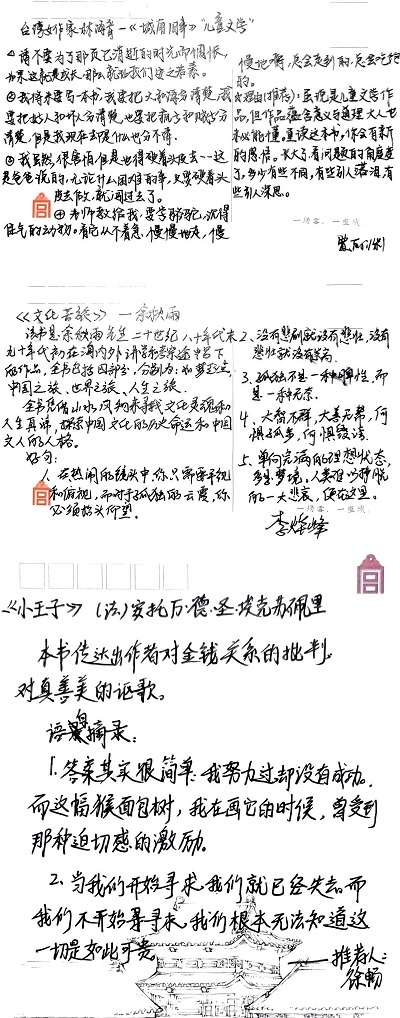 台湾女作家林海音—《城南旧事》"儿童文学"
①请不要为了那页已消逝的时光而惆怅,
如果这就是成长,那么就让我们安之若素。
②我将来要写一本书,我要把大和海分清楚,我
要把好人和坏人分清楚,也要把疯子和贼子分
清楚,但是我现在却是什么也分不清。
③我虽然很害怕,但是也得硬着头皮去——这
是爸爸说的,无论什么困难的事,只要硬着头
皮去做,就闯过去了。
④老师教给我,要学骆驼,沉得
住气的动物。看它从不着急,慢慢地走,慢
慢地嚼,总会走到的,总会吃饱
的。
理由(推荐):虽说是儿童文学作
品,但作品蕴含意义与道理大人也
未必能懂。重读这本书,你会有新
的感悟。长大了,看问题的角度变
了,多少有些不同,有些引人落泪,有
些引人深思。
一场雪、一座城
《文化苦旅》—余秋雨
该书是余秋雨先生二十世纪八十年代末
九十年代初在海内外讲学和考察途中写下
的作品,全书包括四部分,分别为:如梦起点、
中国之旅、世界之旅、人生之旅。
全书凭借山水风物来寻求文化灵魂和
人生真谛,探索中国文化的历史命运和中国
文人的人格。
好句:
1、在热闹的镜头中,你只需要平视
和俯视,而对于孤独的云霞,你
必须抬头仰望。
2、没有悲剧就没有悲壮,没有
悲壮就没有崇高。
3、孤独不是一种脾性,而
是一种无奈。
4、大智不群,大善无帮,何
惧孤步,何惧毁谤。
5、单向完满的理想状态,
多是梦境。人类难以挣脱
的一大悲哀,便在这里。
一场雪、一座城
李烨峰
《小王子》(法)安托万·德·圣·埃克苏佩里
本书传达出作者对金钱关系的批判,
对真善美的讴歌。
语录摘录:
1.答案其实很简单.我努力过却没有成功,
而这幅猴面包树,我在画它的时候,曾受到
那种迫切感的激励。
2.当我们开始寻求,我们就已经失去,而
我们不开始寻求,我们根本无法知道这
一切是如此可贵
——推荐人:
徐畅